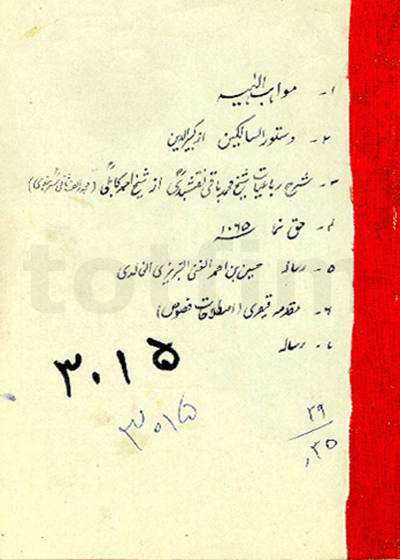 ۱- مواهب الٰہیہ
۲- دستور السالکین از کبیر الدین
۳- شرح رباعیات شیخ محمد باقی نقشبندی از شیخ احمد کابلی (مجدد الف ثانی سرہندی)
۴- حق نما ۱۰۶۵
۵- رسالہ حسین بن احمد الغنی التبریزی الخالدی
۶- مقدمہ قیصری (اصطلاحات فصوص)
۷- رسالہ
۳۰۱۵
۳۰۱۵
۲۹
۰۳۵
totfim